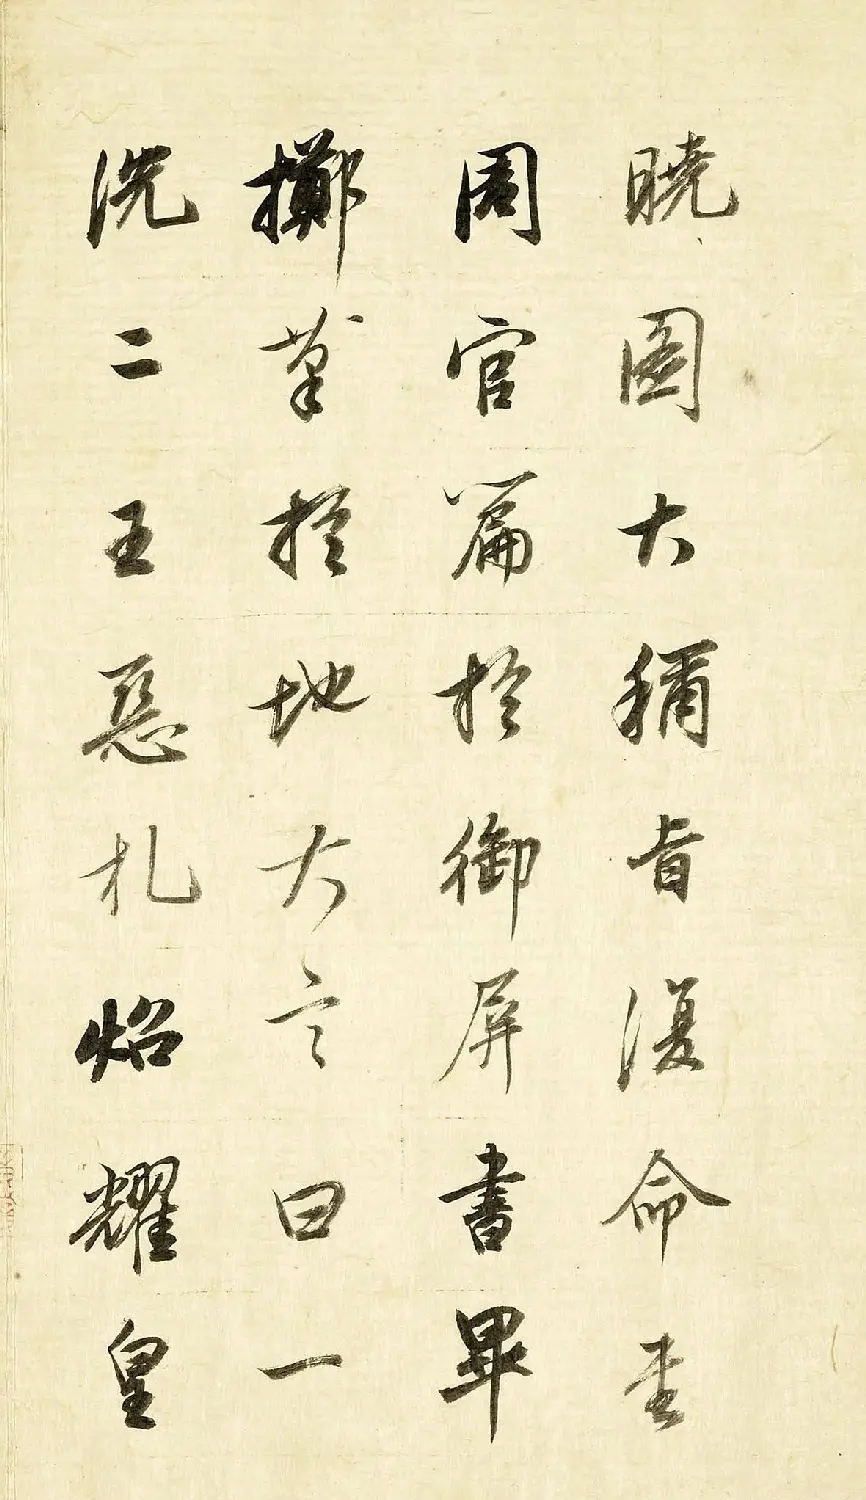 曉圖大稱旨復命書
周官篇於御屏書畢
擲筆於地大言曰一
洗二王惡札照耀皇